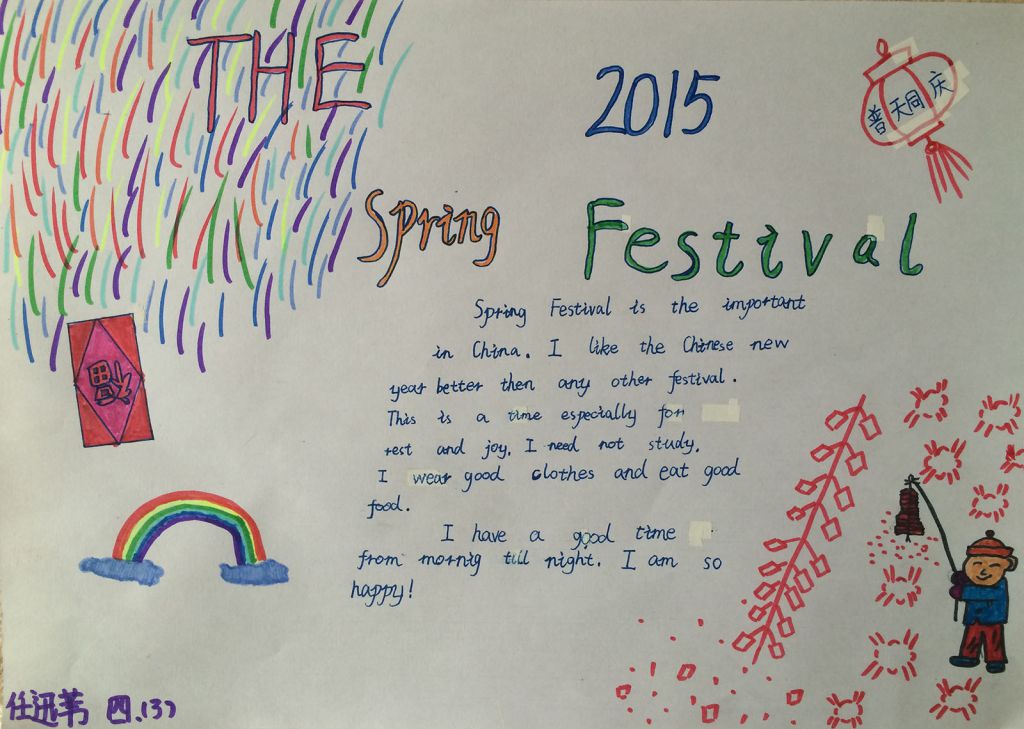 THE
2015
普天同庆
Spring Festival
Spring Festival is the important
in China. I like the Chinese new
year better then any other festival.
This is a time especially for
rest and joy. I need not study.
I wear good clothes and eat good
food.
I have a good time
from mornig till night. I am so
happy!
福
任迅苇 四.(3)